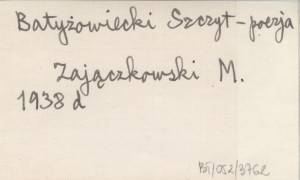 Batyżowiecki Szczyt – poezja
Zajączkowski M.
1938 d
BŤ/052/3762